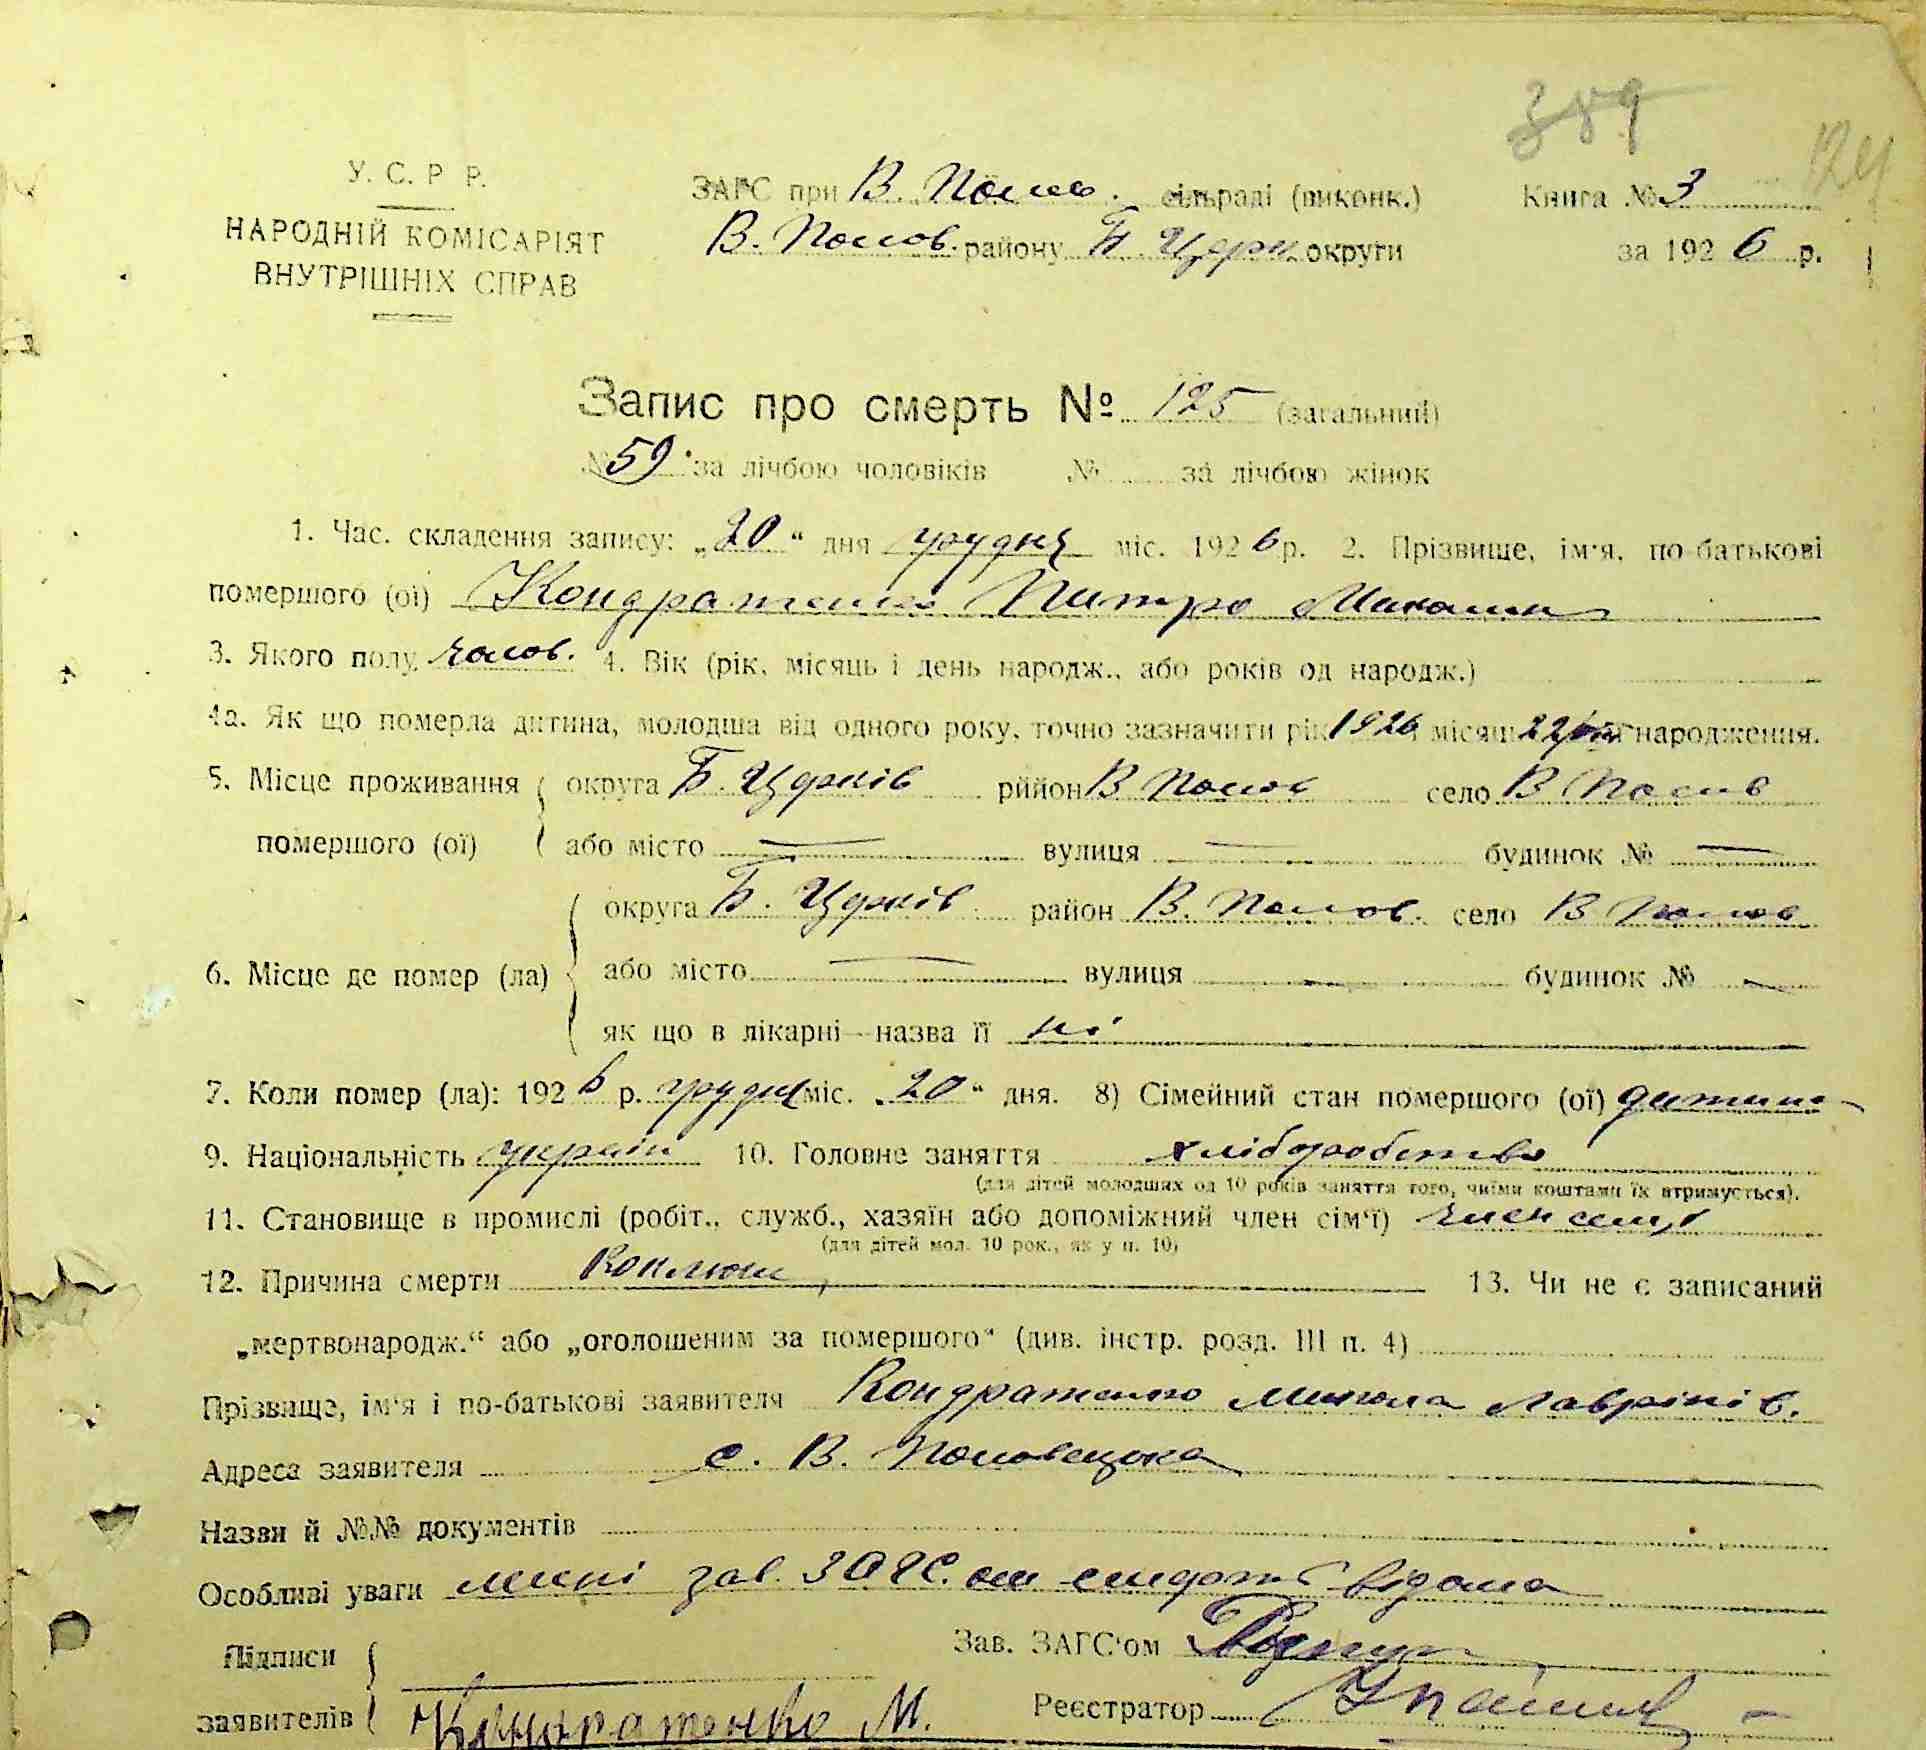 389
124
У. С. Р Р.
НАРОДНІЙ КОМІСАРІЯТ
ВНУТРІШНІХ СПРАВ
ЗАГС при В. Полов. сільраді (виконк.) Книга № 3
В. Полов. району Б. Церк. округи за 1926 р.
Запис про смерть № 125 (загальний)
№ 59 за лічбою чоловіків № за лічбою жінок
1. Час. складення запису: „20“ дня грудня міс. 1926 р. 2. Прізвище, ім'я, по-батькові
помершого (ої) Кондратенко Питро Микол
3. Якого полу чолов. 4. Вік (рік, місяць і день народж., або років од народж.)
4а. Як що померла дитина, молодша від одного року, точно зазначити рік 1926 місяць 22 народження.
5. Місце проживання округа Б. Церків рйион В Полов село В Полов
помершого (ої) або місто — вулиця — будинок № —
округа Б. Церків район В. Полов. село В Полов
6. Місце де помер (ла) або місто — вулиця — будинок № —
як що в лікарні—назва її ні
7. Коли помер (ла): 1926 р. грудня міс. „20“ дня. 8) Сімейний стан помершого (ої) дитина
9. Національність україн 10. Головне заняття хліборобство
(для дітей молодших од 10 років заняття того, чиїми коштами їх втримується).
11. Становище в промислі (робіт., служб., хазяїн або допоміжний член сім'ї) член семї
(для дітей мол. 10 рок., як у п. 10)
12. Причина смерти Коклюш 13. Чи не є записаний
„мертвонародж.“ або „оголошеним за помершого“ (див. інстр. розд. III п. 4)
Прізвище, ім'я і по-батькові заявителя Кондратенко Микола Лаврінів.
Адреса заявителя с. В. Половецька
Назви й №№ документів
Особливі уваги мині зав. ЗАГС. ом смерть відома
Підписи Зав. ЗАГС'ом
заявителів Кондратенко М. Реєстратор